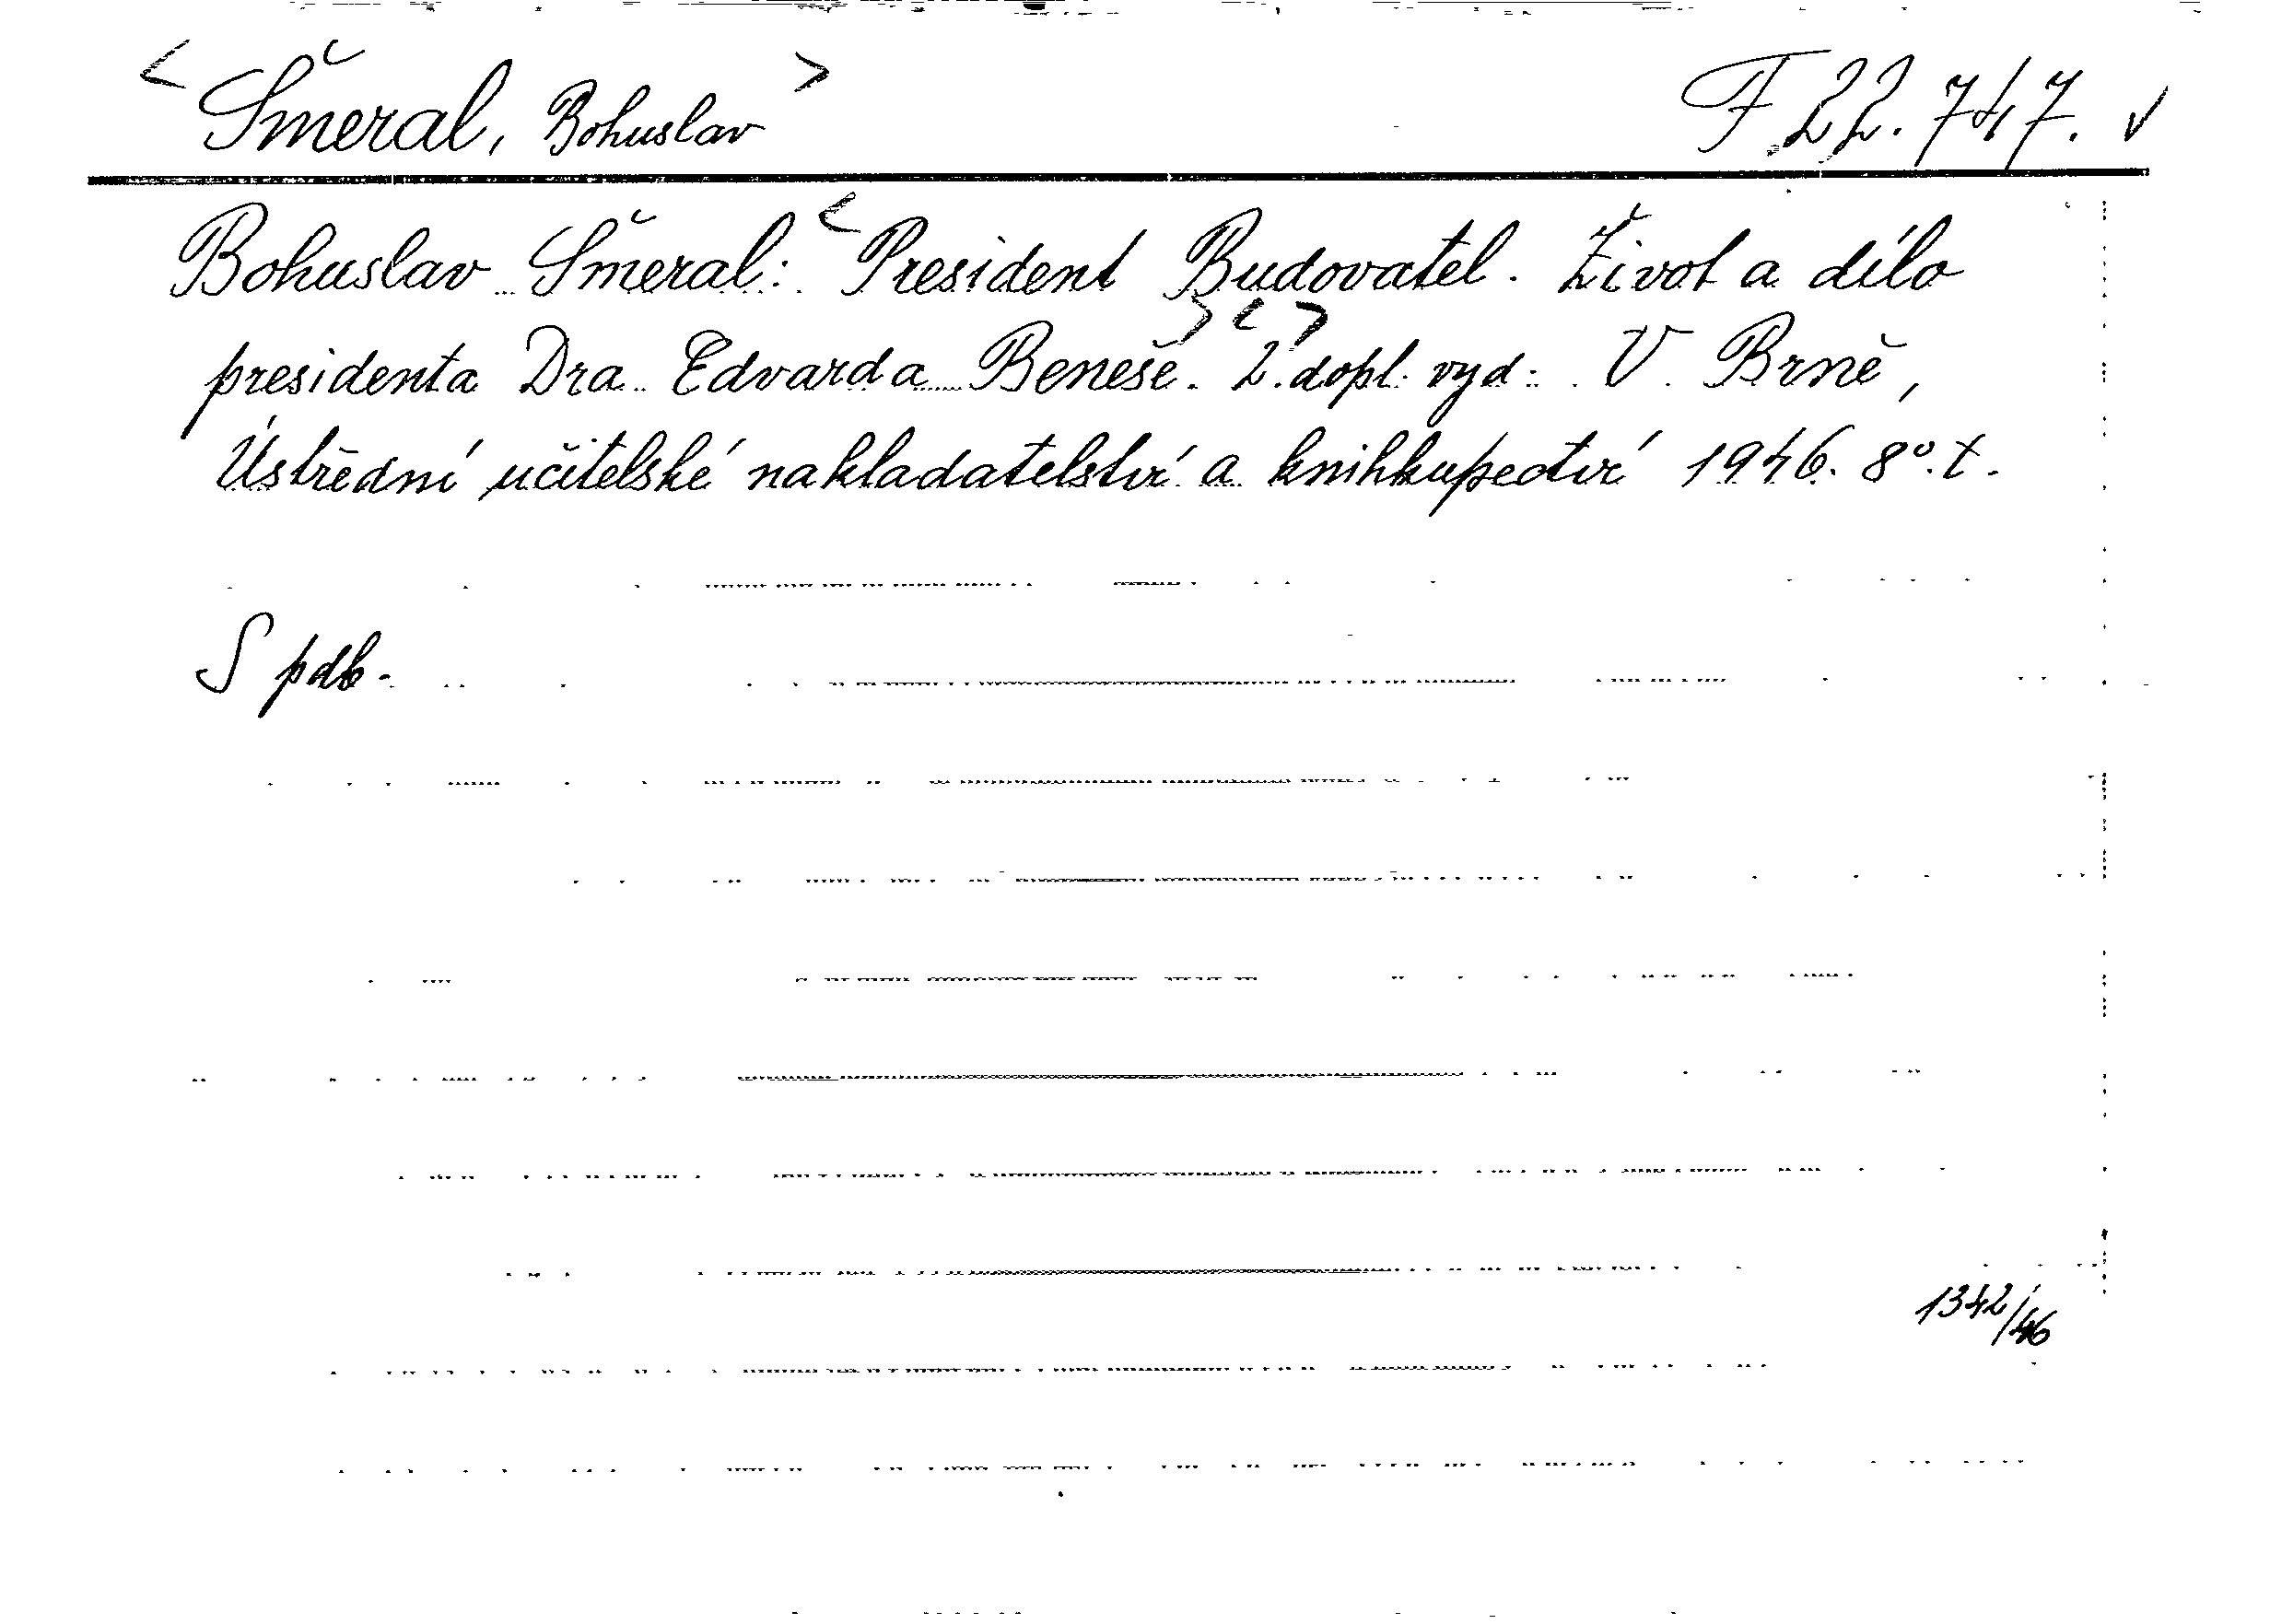 <Šmeral, Bohuslav> F 22.747. ✓
Bohuslav Šmeral: <President Budovatel. Život a dílo
presidenta Dra Edvarda Beneše.> <2.> dopl. vyd. V Brně,
Ústřední učitelské nakladatelství a knihkupectví 1946. 8°. t.
S pdb.
1342/46